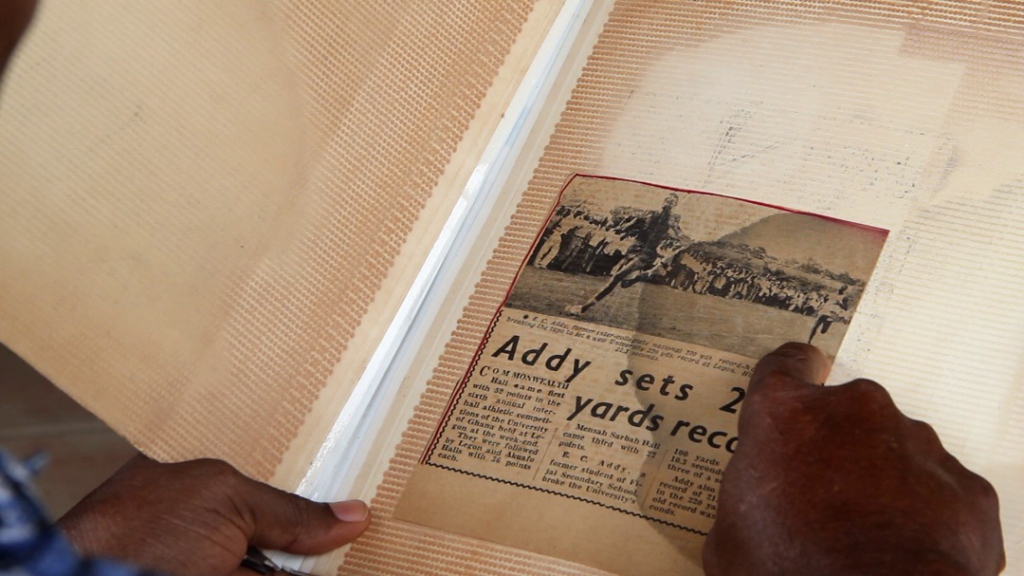 ● E. C. Addy, former inter-collegiate national 220 yds. record-h
breaking the tape to set a new University 220 yds. record at Legon.
Addy sets 2
yards reco
COMMONWEALTH
Hall came first
with 52 points in the
sixth annual inter-
hall athletic competi-
tions of the University
of Ghana held at Le-
gon at the week-end.
They were followed
by Legon and Akuafo
Halls with 34 points
each.
Mensah Sarbah Hall
came third with
points.
E. C. Addy,
former student of
ial Secondary School
broke the University's
100 yards
10.2 second
three
Addy's
record of 21
in the 220 ya
old record wa
conds.